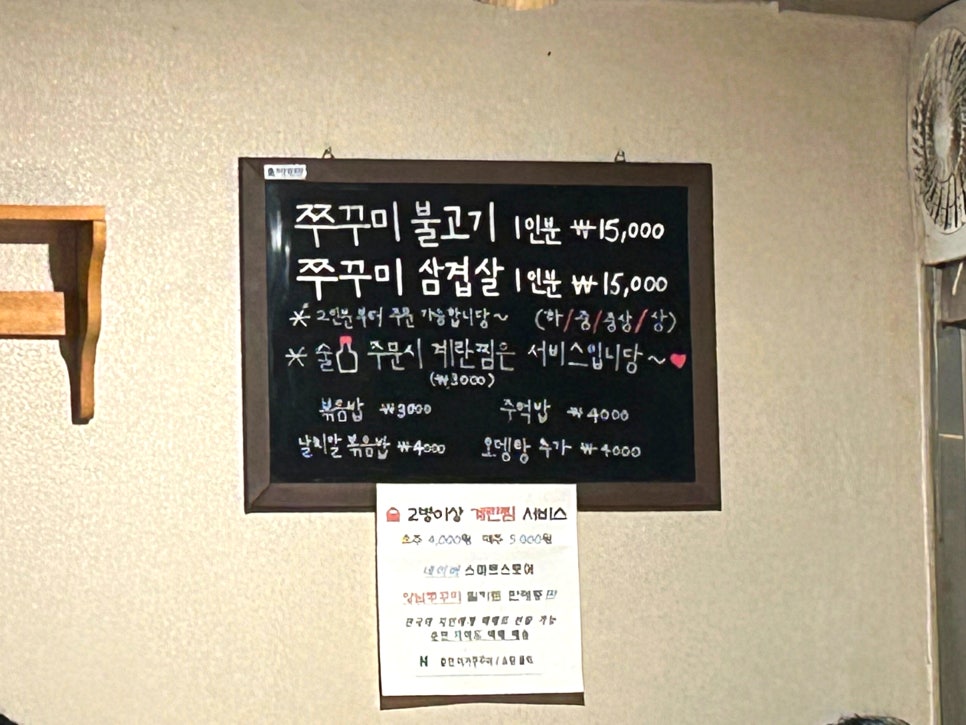 쭈꾸미 불고기 1인분 ₩15,000
쭈꾸미 삼겹살 1인분 ₩15,000
* 2인분부터 주문 가능합니당~ (하/중/중상/상)
* 술 주문시 계란찜은 서비스입니당~
(₩3000)
볶음밥 ₩3000 주먹밥 ₩4000
날치알 볶음밥 ₩4000 오뎅탕 추가 ₩4000
2병이상 계란찜 서비스
소주 4,000원 맥주 5,000원
네이버 스마트스토어
양념쭈꾸미 밀키트 판매중
N